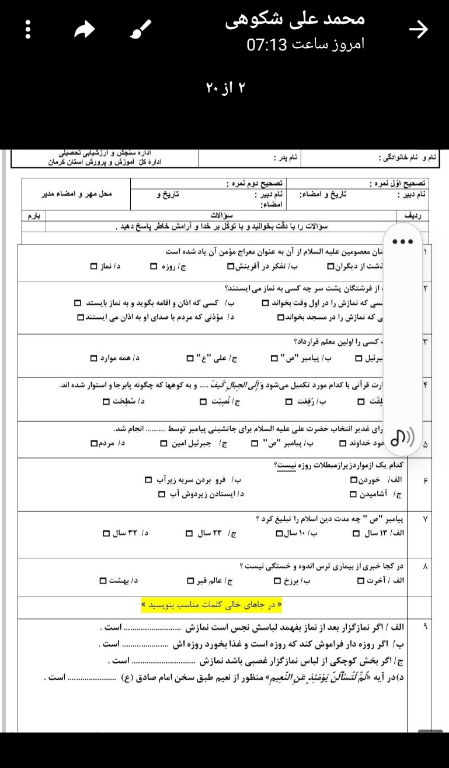 محمد علی شکوهی
امروز ساعت 07:13
۲ از ۲۰
اداره سنجش و ارزشیابی تحصیلی
اداره کل آموزش و پرورش استان کرمان
نام پدر :
نام و نام خانوادگی :
تصحیح اوّل نمره :
نام دبیر :
تاریخ و امضاء:
تصحیح دوم نمره :
نام دبیر :
تاریخ و
امضاء:
محل مهر و امضاء مدیر
ردیف
سؤالات
بارم
سؤالات را با دقّت بخوانید و با توکل بر خدا و آرامش خاطر پاسخ دهید .
۱
معصومین علیه السلام از آن به عنوان معراج مؤمن آن یاد شده است
از دیگران□ ب/ تفکر در آفرینش□ ج/ روزه □ د/ نماز □
۲
از فرشتگان پشت سر چه کسی به نماز می ایستند؟
که نمازش را در اول وقت بخواند □ ب/ کسی که اذان و اقامه بگوید و به نماز بایستد □
که نمازش را در مسجد بخواند□ د/ مؤذنی که مردم با صدای او به اذان می ایستند□
۳
کسی را اولین معلم قرارداد؟
□ ب/ پیامبر "ص" □ ج/ علی "ع" □ د/ همه موارد □
۴
قرآنی با کدام مورد تکمیل می‌شود وَ إِلَی الجِبالِ کَیفَ .... و به کوهها که چگونه پابرجا و استوار شده اند.
□ ب/ رُفِعَت □ ج/ نُصِبَت □ د/ سُطِحَت □
۵
غدیر انتخاب حضرت علی علیه السلام برای جانشینی پیامبر توسط .......... انجام شد.
خداوند □ ب/ پیامبر "ص" □ ج/ جبرئیل امین □ د/ مردم□
۶
کدام یک ازمواردزیرازمبطلات روزه نیست؟
الف/ خوردن□ ب/ فرو بردن سربه زیرآب □
ج/ آشامیدن □ د/ ایستادن زیردوش آب □
۷
پیامبر "ص" چه مدت دین اسلام را تبلیغ کرد ؟
الف/ ۱۳ سال □ ب/ ۱۰ سال□ ج/ ۲۳ سال □ د/ ۳۲ سال □
۸
در کجا خبری از بیماری ترس اندوه و خستگی نیست؟
الف / آخرت □ ب/ برزخ □ ج/ عالم قبر □ د/ بهشت □
« در جاهای خالی کلمات مناسب بنویسید »
۹
الف / اگر نمازگزار بعد از نماز بفهمد لباسش نجس است نمازش .................... است .
ب/ اگر روزه دار فراموش کند که روزه است و غذا بخورد روزه اش ................ است .
ج/ اگر بخش کوچکی از لباس نمازگزار غصبی باشد نمازش ...................... است .
د)در آیه «ثُمَّ لَتُسأَلُنَّ یَومَئِذٍ عَنِ النَّعِیمِ» منظور از نعیم طبق سخن امام صادق (ع) ................ است .